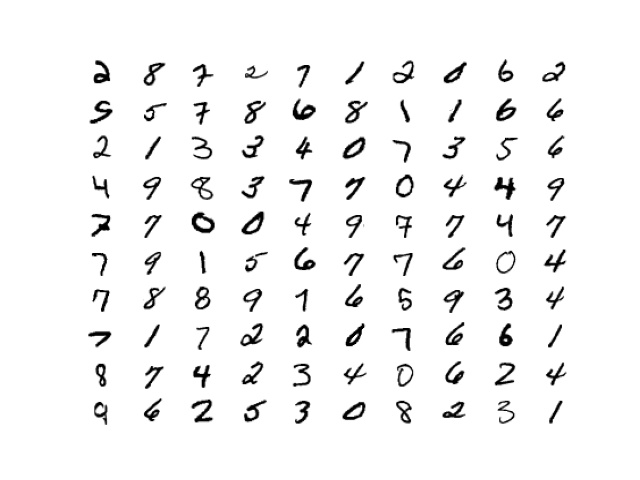 2 8 7 2 7 1 2 0 6 2
5 5 7 8 6 8 1 1 6 6
2 1 3 3 4 0 7 3 5 6
4 9 8 3 7 7 0 4 4 9
7 7 0 0 4 9 7 7 4 7
7 9 1 5 6 7 7 6 0 4
7 8 8 9 1 6 5 9 3 4
7 1 7 2 2 0 7 6 6 1
8 7 4 2 3 4 0 6 2 4
9 6 2 5 3 0 8 2 3 1